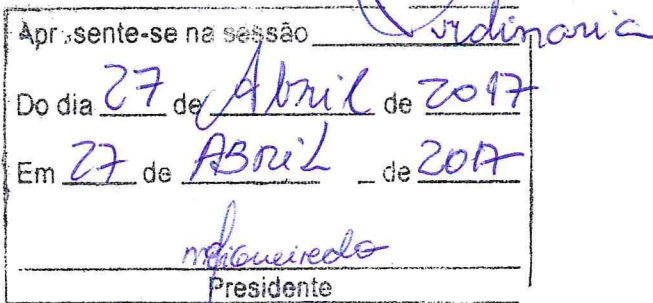 Apresente-se na sessão Ordinaria
Do dia 27 de Abril de 2017
Em 27 de ABRIL de 2017
mfigueiredo
Presidente